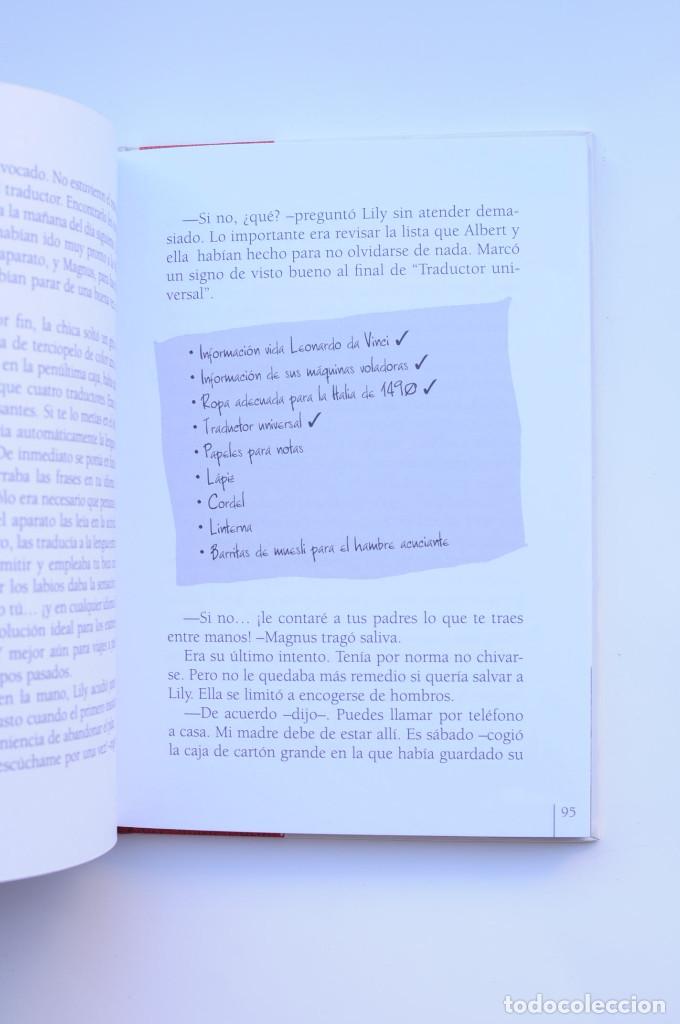 vocado. No estuvieron el
traductor.
a la mañana del día
habían ido muy
aparato, y Magnus,
bían parar de una buena
or fin, la chica soltó un
a de terciopelo de color
en la penúltima caja,
que cuatro traductores.
antes. Si te lo metías en el
ía automáticamente la
De inmediato se ponía en
rraba las frases en tu
olo era necesario que
el aparato las leía en la
o, las traducía a la lengua
mitir y empleaba tu
r los labios daba la
o tú... ¡y en cualquier
olución ideal para los
Y mejor aún para viajes a
pos pasados.
en la mano, Lily acudió
usto cuando el primer
niencia de abandonar el
escúchame por una vez
—Si no, ¿qué? –preguntó Lily sin atender dema-
siado. Lo importante era revisar la lista que Albert y
ella habían hecho para no olvidarse de nada. Marcó
un signo de visto bueno al final de “Traductor uni-
versal”.
• Información vida Leonardo da Vinci ✓
• Información de sus máquinas voladoras ✓
• Ropa adecuada para la Italia de 1490 ✓
• Traductor universal ✓
• Papeles para notas
• Lápiz
• Cordel
• Linterna
• Barritas de muesli para el hambre acuciante
—Si no... ¡le contaré a tus padres lo que te traes
entre manos! –Magnus tragó saliva.
Era su último intento. Tenía por norma no chivar-
se. Pero no le quedaba más remedio si quería salvar a
Lily. Ella se limitó a encogerse de hombros.
—De acuerdo –dijo–. Puedes llamar por teléfono
a casa. Mi madre debe de estar allí. Es sábado –cogió
la caja de cartón grande en la que había guardado su
95
todocoleccion